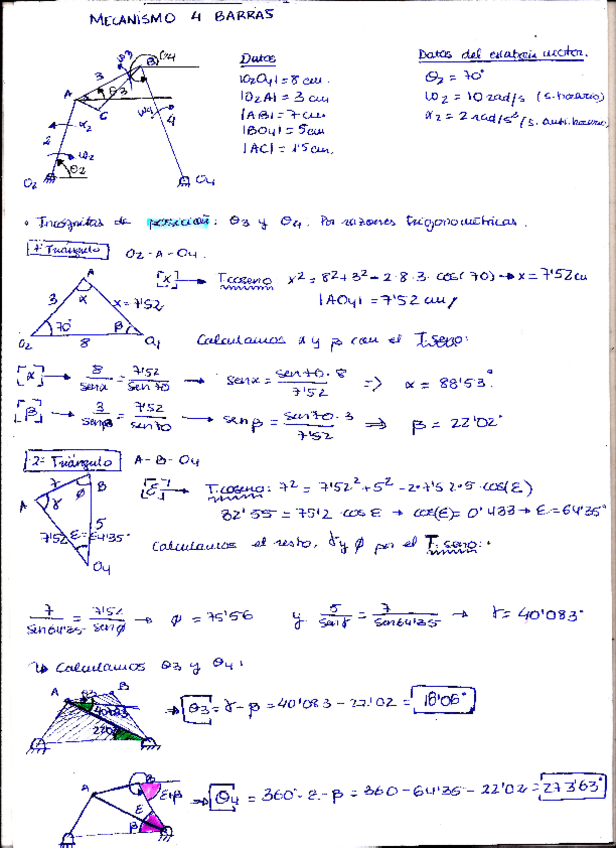 MECANISMO 4 BARRAS
Datos
|O2O4| = 8 cm.
|O2A| = 3 cm
|AB| = 7 cm
|BO4| = 5 cm
|AC| = 1'5 cm.
Datos del eslabón motor.
θ2 = 70°
ω2 = 10 rad/s (s. horario)
α2 = 2 rad/s² (s. anti.horario)
A
B
C
O2
O4
2
3
4
θ2
θ3
θ4
ω2
ω3
ω4
α2
• Incógnitas de posición: θ3 y θ4. Por razones trigonométricas.
1º Triángulo O2-A-O4.
[x] → T.coseno x² = 8²+3²-2·8·3·cos(70) → x = 7'52 cm
|AO4| = 7'52 cm
A
3
α
x = 7'52
70°
β
O2
8
O4
Calculamos α y β con el T.seno:
[α] → 8/senα = 7'52/sen70 → senα = sen70·8/7'52 => α = 88'53°
[β] → 3/senβ = 7'52/sen70 → senβ = sen70·3/7'52 => β = 22'02°
2º Triángulo A-B-O4
[ε] → T.coseno: 7² = 7'52²+5²-2·7'52·5·cos(ε)
32'55 = 75'2·cosε → cos(ε) = 0'433 → ε = 64'35°
A
7
B
γ
φ
5
7'52
ε = 64'35°
O4
Calculamos el resto, γ y φ por el T.seno:
7/sen64'35 = 7'52/senφ → φ = 75'56 y 5/senγ = 7/sen64'35 → γ = 40'083°
↳ Calculamos θ3 y θ4:
A
θ3
B
40'083
22'02
⇒ θ3 = γ-β = 40'083-22'02 = 18'06°
A
B
ε+β
ε
β
⇒ θ4 = 360°-ε-β = 360-64'35-22'02 = 273'63°